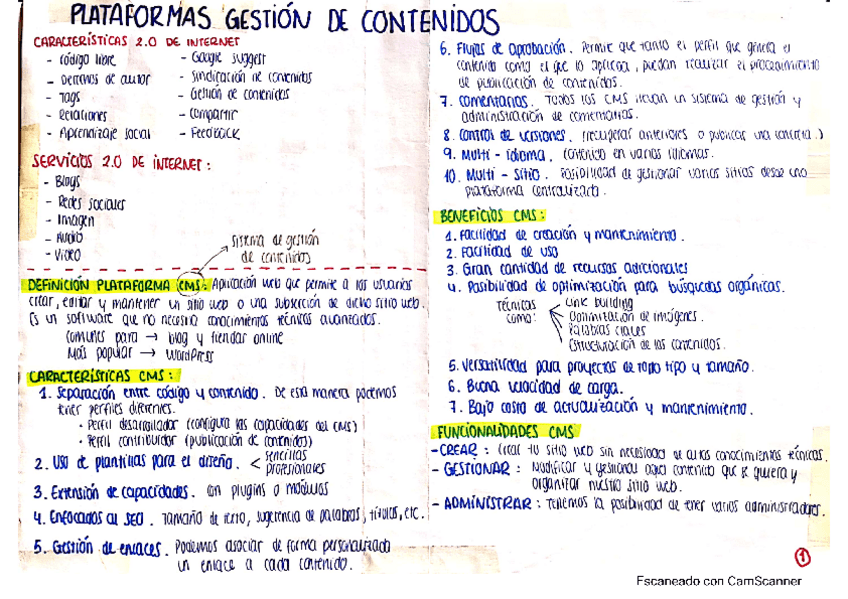 PLATAFORMAS GESTIÓN DE CONTENIDOS
CARACTERÍSTICAS 2.0 DE INTERNET
- código libre
- Derechos de autor
- Tags
- Relaciones
- Aprendizaje social
- Google suggest
- Sindicación de contenidos
- Gestión de contenidos
- Compartir
- Feedback
SERVICIOS 2.0 DE INTERNET :
- Blogs
- Redes sociales
- Imagen
- Audio
- Video
Sistema de gestión
de contenidos
DEFINICIÓN PLATAFORMA CMS: Aplicación web que permite a los usuarios
crear, editar y mantener un sitio web o una subsección de dicho sitio web.
Es un software que no necesita conocimientos técnicos avanzados.
Comunes para → blog y tiendas online
Más popular → WordPress
CARACTERÍSTICAS CMS :
1. Separación entre código y contenido. De esta manera podemos
tener perfiles diferentes.
· Perfil desarrollador (configura las capacidades del CMS)
· Perfil contribuidor (publicación de contenidos)
2. Uso de plantillas para el diseño. < sencillas
profesionales
3. Extensión de capacidades. con plugins o módulos
4. Enfocados al SEO. Tamaño de texto, sugerencia de palabras, títulos, etc.
5. Gestión de enlaces. Podemos asociar de forma personalizada
un enlace a cada contenido.
6. Flujos de aprobación. Permite que tanto el perfil que genera el
contenido como el que lo aprueba, puedan realizar el procedimiento
de publicación de contenidos.
7. Comentarios. Todos los CMS llevan un sistema de gestión y
administración de comentarios.
8. Control de versiones. (recuperar anteriores o publicar una concreta.)
9. Multi - idioma. Contenido en varios idiomas.
10. Multi - Sitio. Posibilidad de gestionar varios sitios desde una
plataforma centralizada.
BENEFICIOS CMS :
1. Facilidad de creación y mantenimiento.
2. Facilidad de uso
3. Gran cantidad de recursos adicionales
4. Posibilidad de optimización para búsquedas orgánicas.
Técnicas
como:
Link building
Optimización de imágenes.
Palabras claves
Estructuración de los contenidos.
5. Versatilidad para proyectos de todo tipo y tamaño.
6. Buena velocidad de carga.
7. Bajo costo de actualización y mantenimiento.
FUNCIONALIDADES CMS
- CREAR : Crear tu sitio web sin necesidad de altos conocimientos técnicos.
- GESTIONAR : Modificar y gestionar aquel contenido que se quiera y
organizar nuestro sitio web.
- ADMINISTRAR : Tenemos la posibilidad de tener varios administradores.
1
Escaneado con CamScanner